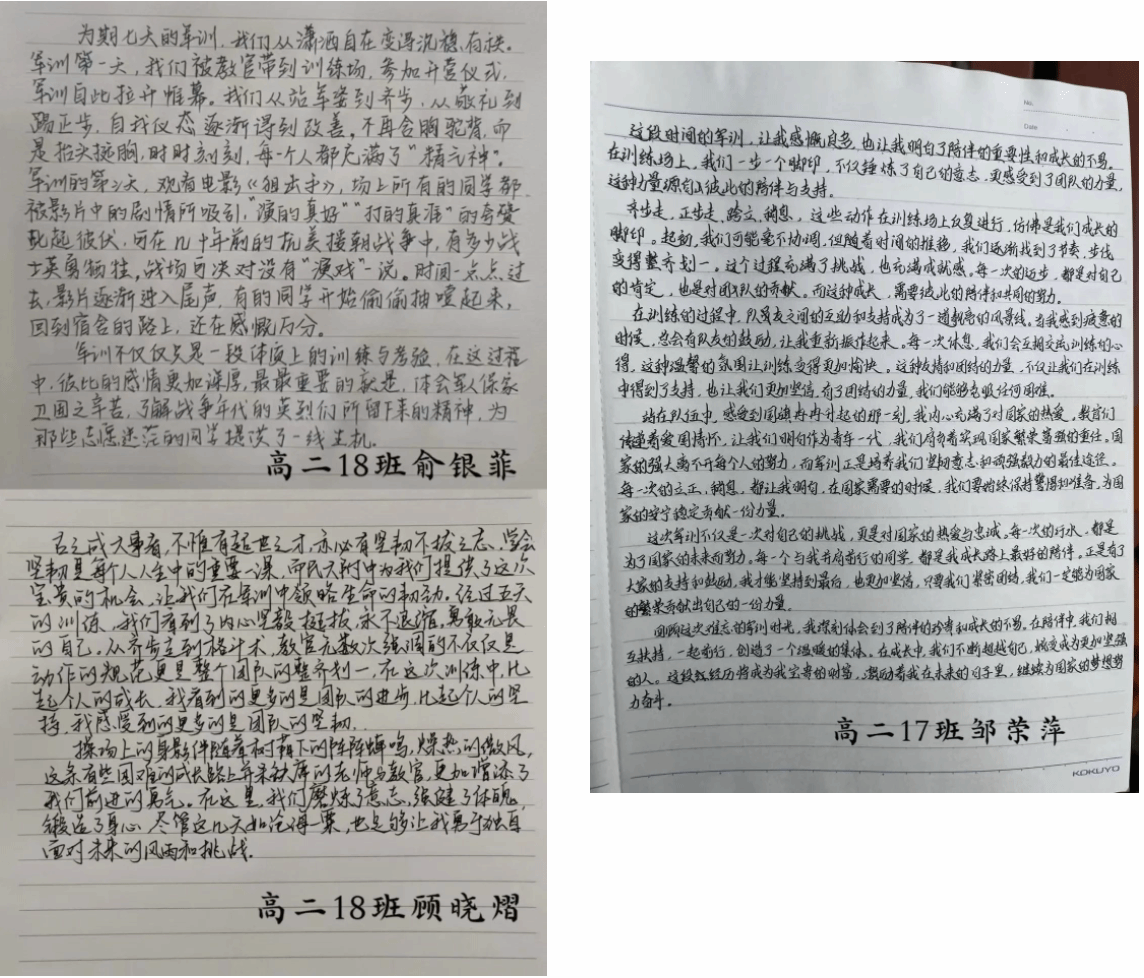 为期七天的军训，我们从潇洒自在变得沉稳有秩。
军训第一天，我们被教官带到训练场，参加开营仪式，
军训自此拉开帷幕。我们从站军姿到齐步，从敬礼到
踢正步，自我仪态逐渐得到改善。不再含胸驼背，而
是抬头挺胸，时时刻刻，每一个人都充满了“精气神”。
军训的第二天，观看电影《狙击手》，场上所有的同学都
被影片中的剧情所吸引，“演的真好”“打的真准”的
此起彼伏，可在几十年前的抗美援朝战争中，有多少战
士英勇牺牲，战场可决对没有“演戏”一说。时间一点点过
去，影片逐渐进入尾声，有的同学开始偷偷抽噎起来，
回到宿舍的路上，还在感慨万分。
军训不仅仅只是一段体质上的训练与考验，在这过程
中，彼此的感情更加深厚，最最重要的就是，体会军人保家
卫国之辛苦，了解战争年代的英烈们所留下来的精神，为
那些志愿迷茫的同学提供了一线生机。
高二18班俞银菲
古之成大事者，不惟有超世之才，亦必有坚韧不拔之志，学会
坚韧是每个人人生中的重要一课，而民大附中为我们提供了这次
宝贵的机会，让我们在军训中领略生命的韧劲。经过五天
的训练，我们看到了内心坚毅挺拔，永不退缩，勇敢无畏
的自己。从齐步走到格斗术，教官无数次强调的不仅仅是
动作的规范更是整个团队的整齐划一，在这次训练中，比
起个人的成长，我看到的更多的是团队的进步，比起个人的坚
持，我感受到的更多的是团队的坚韧。
操场上的身影伴随着树荫下的阵阵蝉鸣，燥热的微风，
这条有些困难的成长路上并未缺席的老师与教官，更加增添了
我们前进的勇气。在这里，我们磨炼了意志，强健了体魄，
锻造了身心，尽管这几天如沧海一粟，也足够让我勇于独自
面对未来的风雨和挑战。
高二18班顾晓熠
No.
Date
这段时间的军训，让我感慨良多，也让我明白了陪伴的重要性和成长的不易。
在训练场上，我们一步一个脚印，不仅锤炼了自己的意志，更感受到了团队的力量，
这种力量源自彼此的陪伴与支持。
齐步走，正步走，跨立，稍息，这些动作在训练场上反复进行，仿佛是我们成长的
脚印。起初，我们可能毫不协调，但随着时间的推移，我们逐渐找到了节奏，步伐
变得整齐划一。这个过程充满了挑战，也充满成就感。每一次的迈步，都是对自己
的肯定，也是对团队的贡献。而这种成长，需要彼此的陪伴和共同的努力。
在训练的过程中，队友之间的互助和支持成为了一道靓丽的风景线。当我感到疲惫的
时候，总会有队友的鼓励，让我重新振作起来。每一次休息，我们会互相交流训练的心
得，这种温馨的氛围让训练变得更加愉快。这种友情和团结的力量，不仅让我们在训练
中得到了支持，也让我们更加坚信，有了团结的力量，我们能够克服任何困难。
站在队伍中，感受到国旗冉冉升起的那一刻，我内心充满了对国家的热爱，教官们
传递着爱国情怀，让我们明白作为青年一代，我们肩负着实现国家繁荣富强的重任。国
家的强大离不开每个人的努力，而军训正是培养我们坚韧意志和顽强毅力的最佳途径。
每一次的立正，稍息，都让我明白，在国家需要的时候，我们要始终保持警惕和准备，为国
家的安宁稳定贡献一份力量。
这次军训不仅是一次对自己的挑战，更是对国家的热爱与忠诚。每一次的汗水，都是
为了国家的未来而努力。每一个与我并肩前行的同学，都是我成长路上最好的陪伴。正是有了
大家的支持和鼓励，我才能坚持到最后，也更加坚信，只要我们紧密团结，我们一定能为国家
的繁荣贡献出自己的一份力量。
回顾这次难忘的军训时光，我深刻体会到了陪伴的珍贵和成长的不易。在陪伴中，我们相
互扶持，一起前行，创造了一个温暖的集体。在成长中，我们不断超越自己，蜕变成为更加坚强
的人。这段经历将成为我宝贵的财富，激励着我在未来的日子里，继续为国家的梦想努
力奋斗。
高二17班邹荣萍
KOKUYO